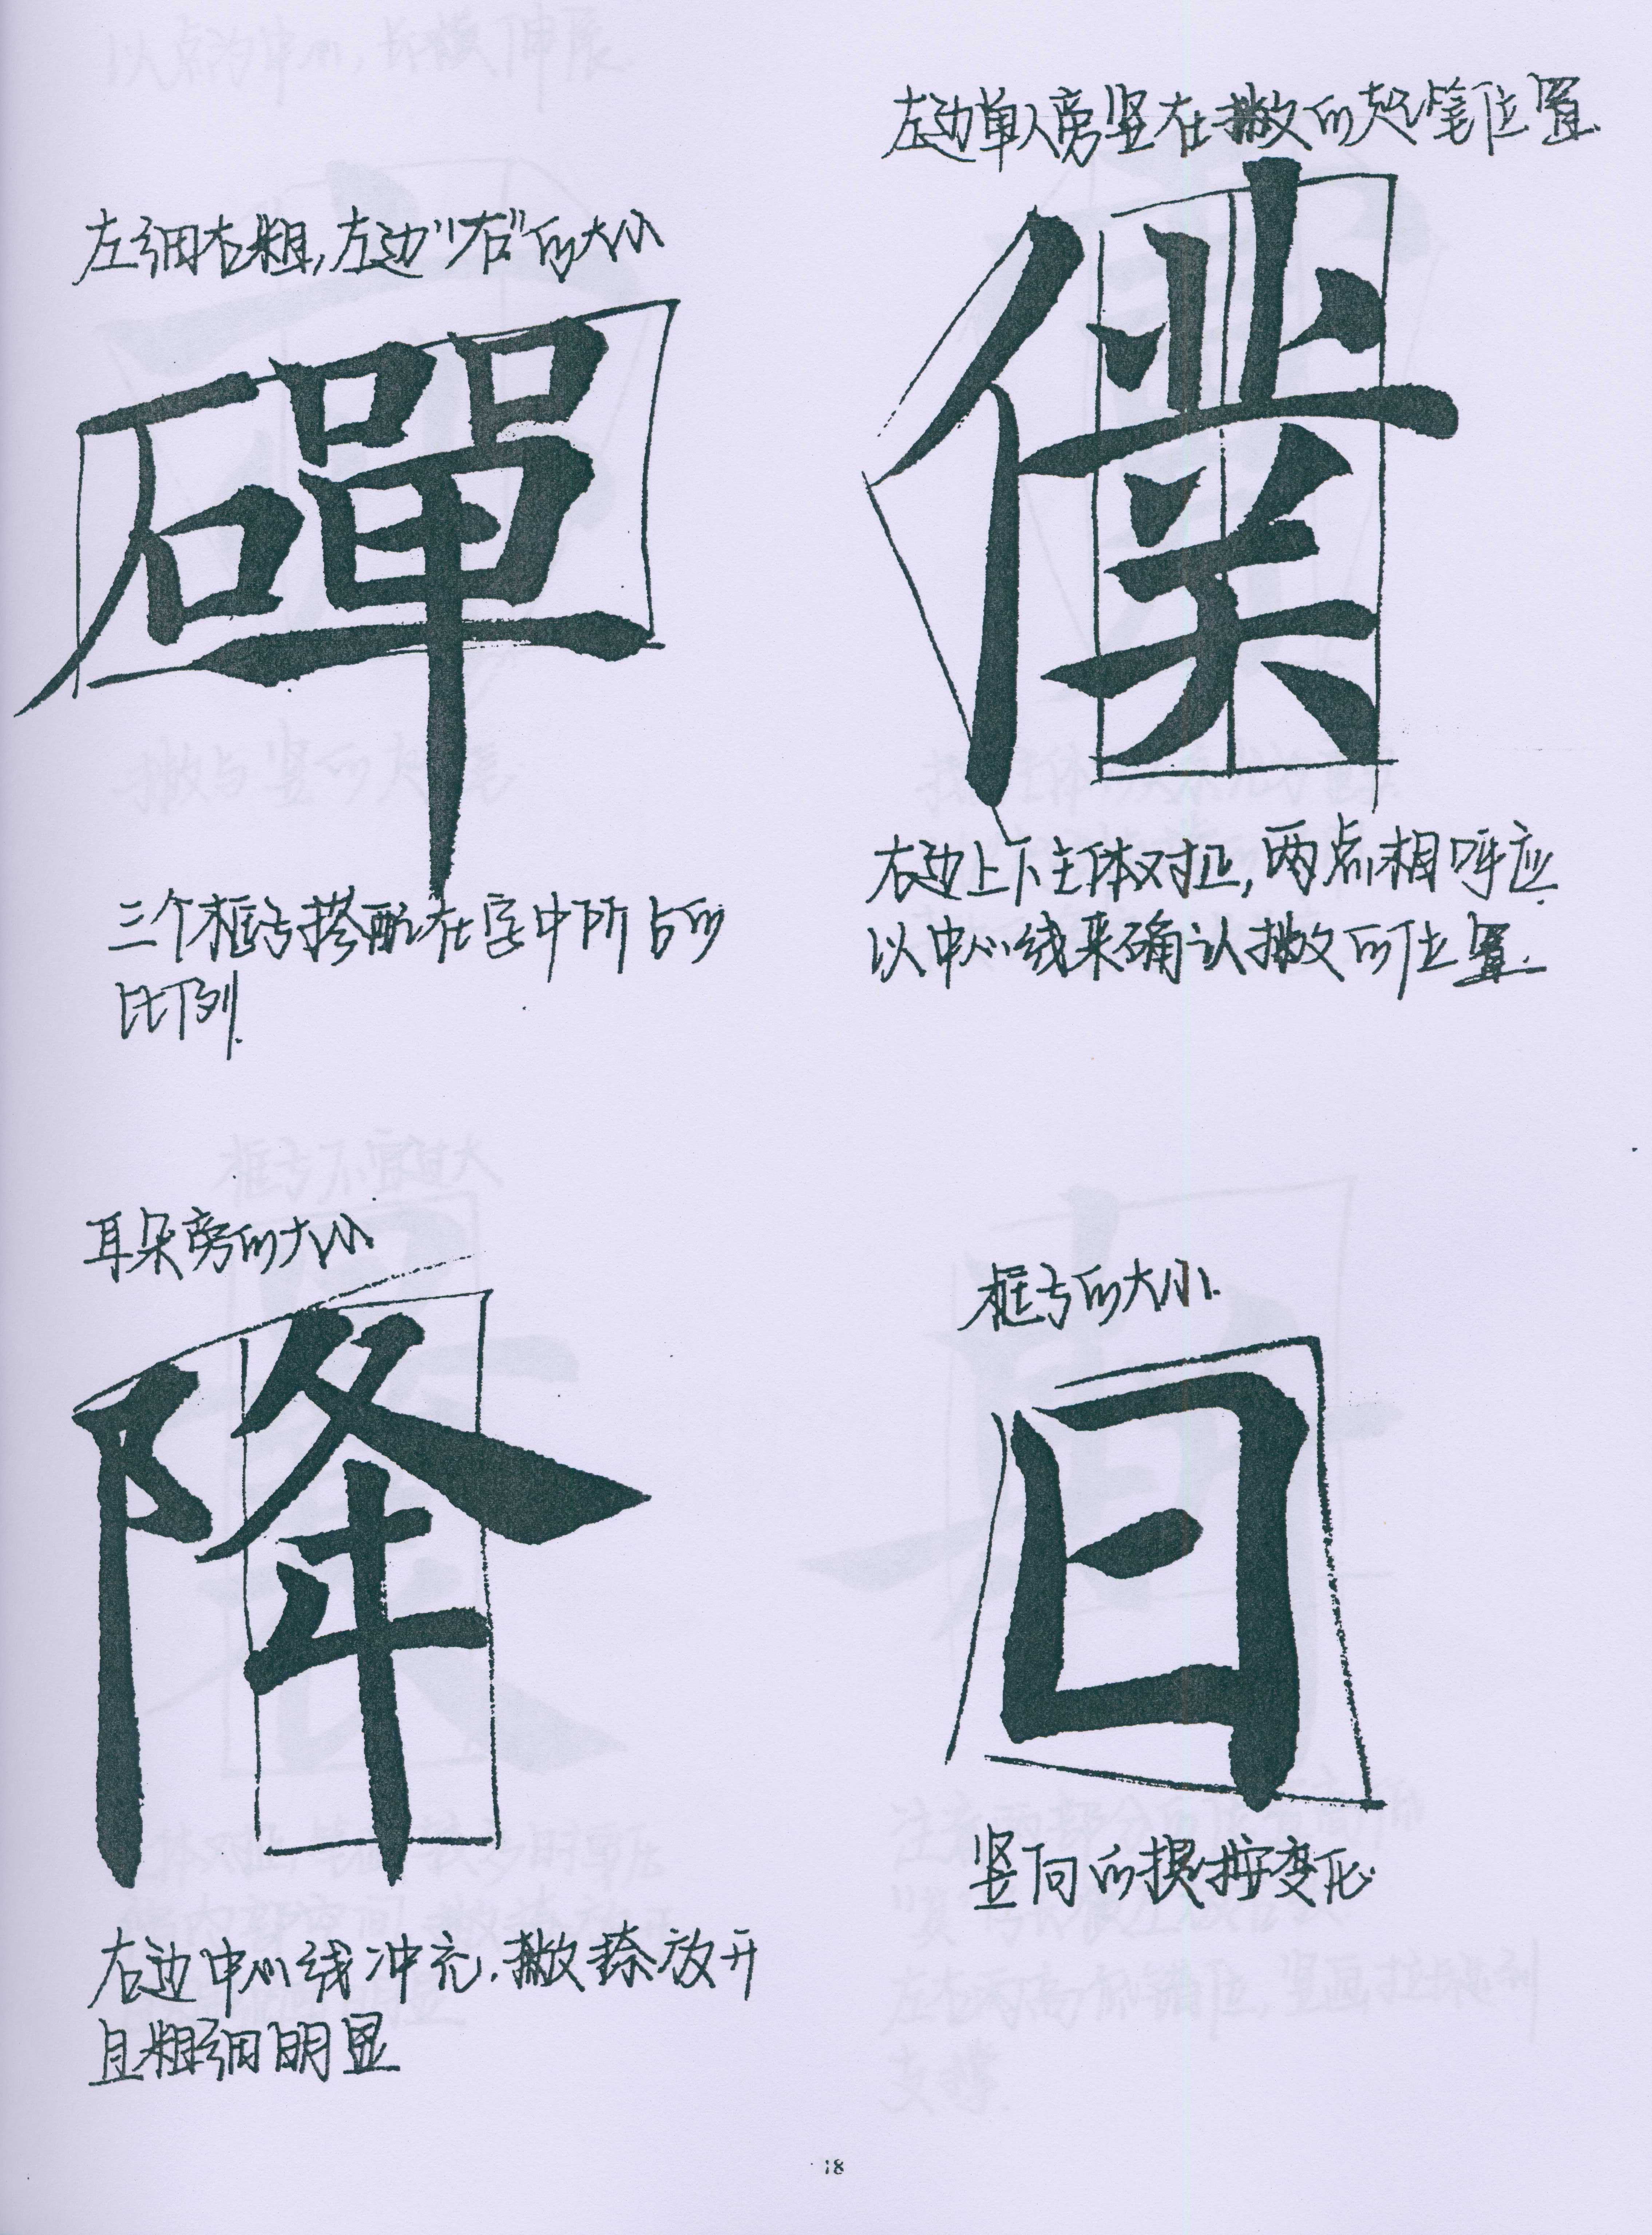 左边单人旁竖在撇的起笔位置.
左细右粗,左边“石”的大小
磾
僕
右边上下主体对正,两点相呼应.
以中心线来确认撇的位置.
三个框与搭配在字中所占的
比例.
耳朵旁的大小
框与的大小.
降
日
竖向的提按变化.
右边中心线冲充.撇捺放开
且粗细明显
18